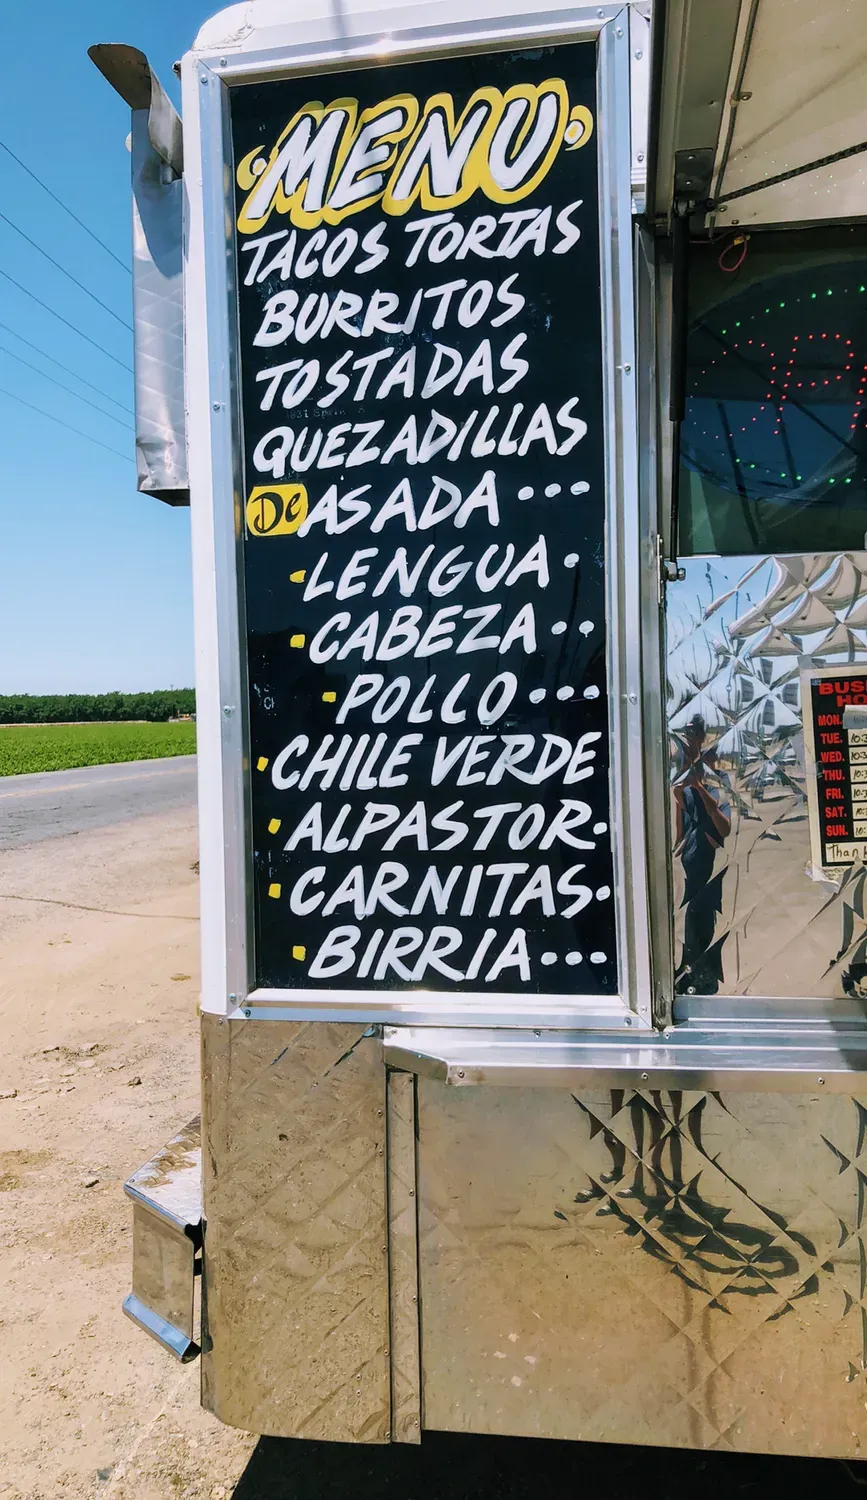 MENU
TACOS TORTAS
BURRITOS
TOSTADAS
QUEZADILLAS
De ASADA ...
LENGUA.
CABEZA..
POLLO....
CHILE VERDE
ALPASTOR.
CARNITAS.
BIRRIA...
MON.
TUE.
WED.
THU.
FRI.
SAT.
SUN.